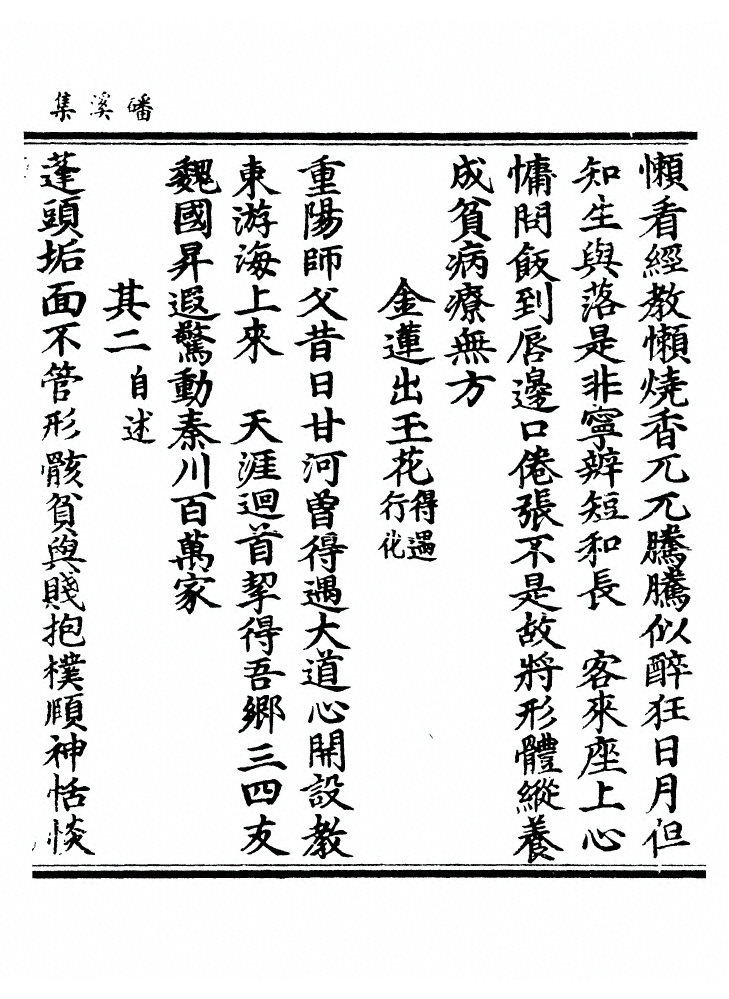 磻溪集
懶看經教懶燒香兀兀騰騰似醉狂日月但
知生與落是非寧辨短和長　客來座上心
慵問飯到唇邊口倦張不是故將形體縱養
成貧病療無方
金蓮出玉花得遇行化
重陽師父昔日甘河曾得遇大道心開設教
東游海上來　天涯迴首挈得吾鄉三四友
魏國昇遐驚動秦川百萬家
其二自述
蓬頭垢面不管形骸貧與賤抱樸頤神恬惔